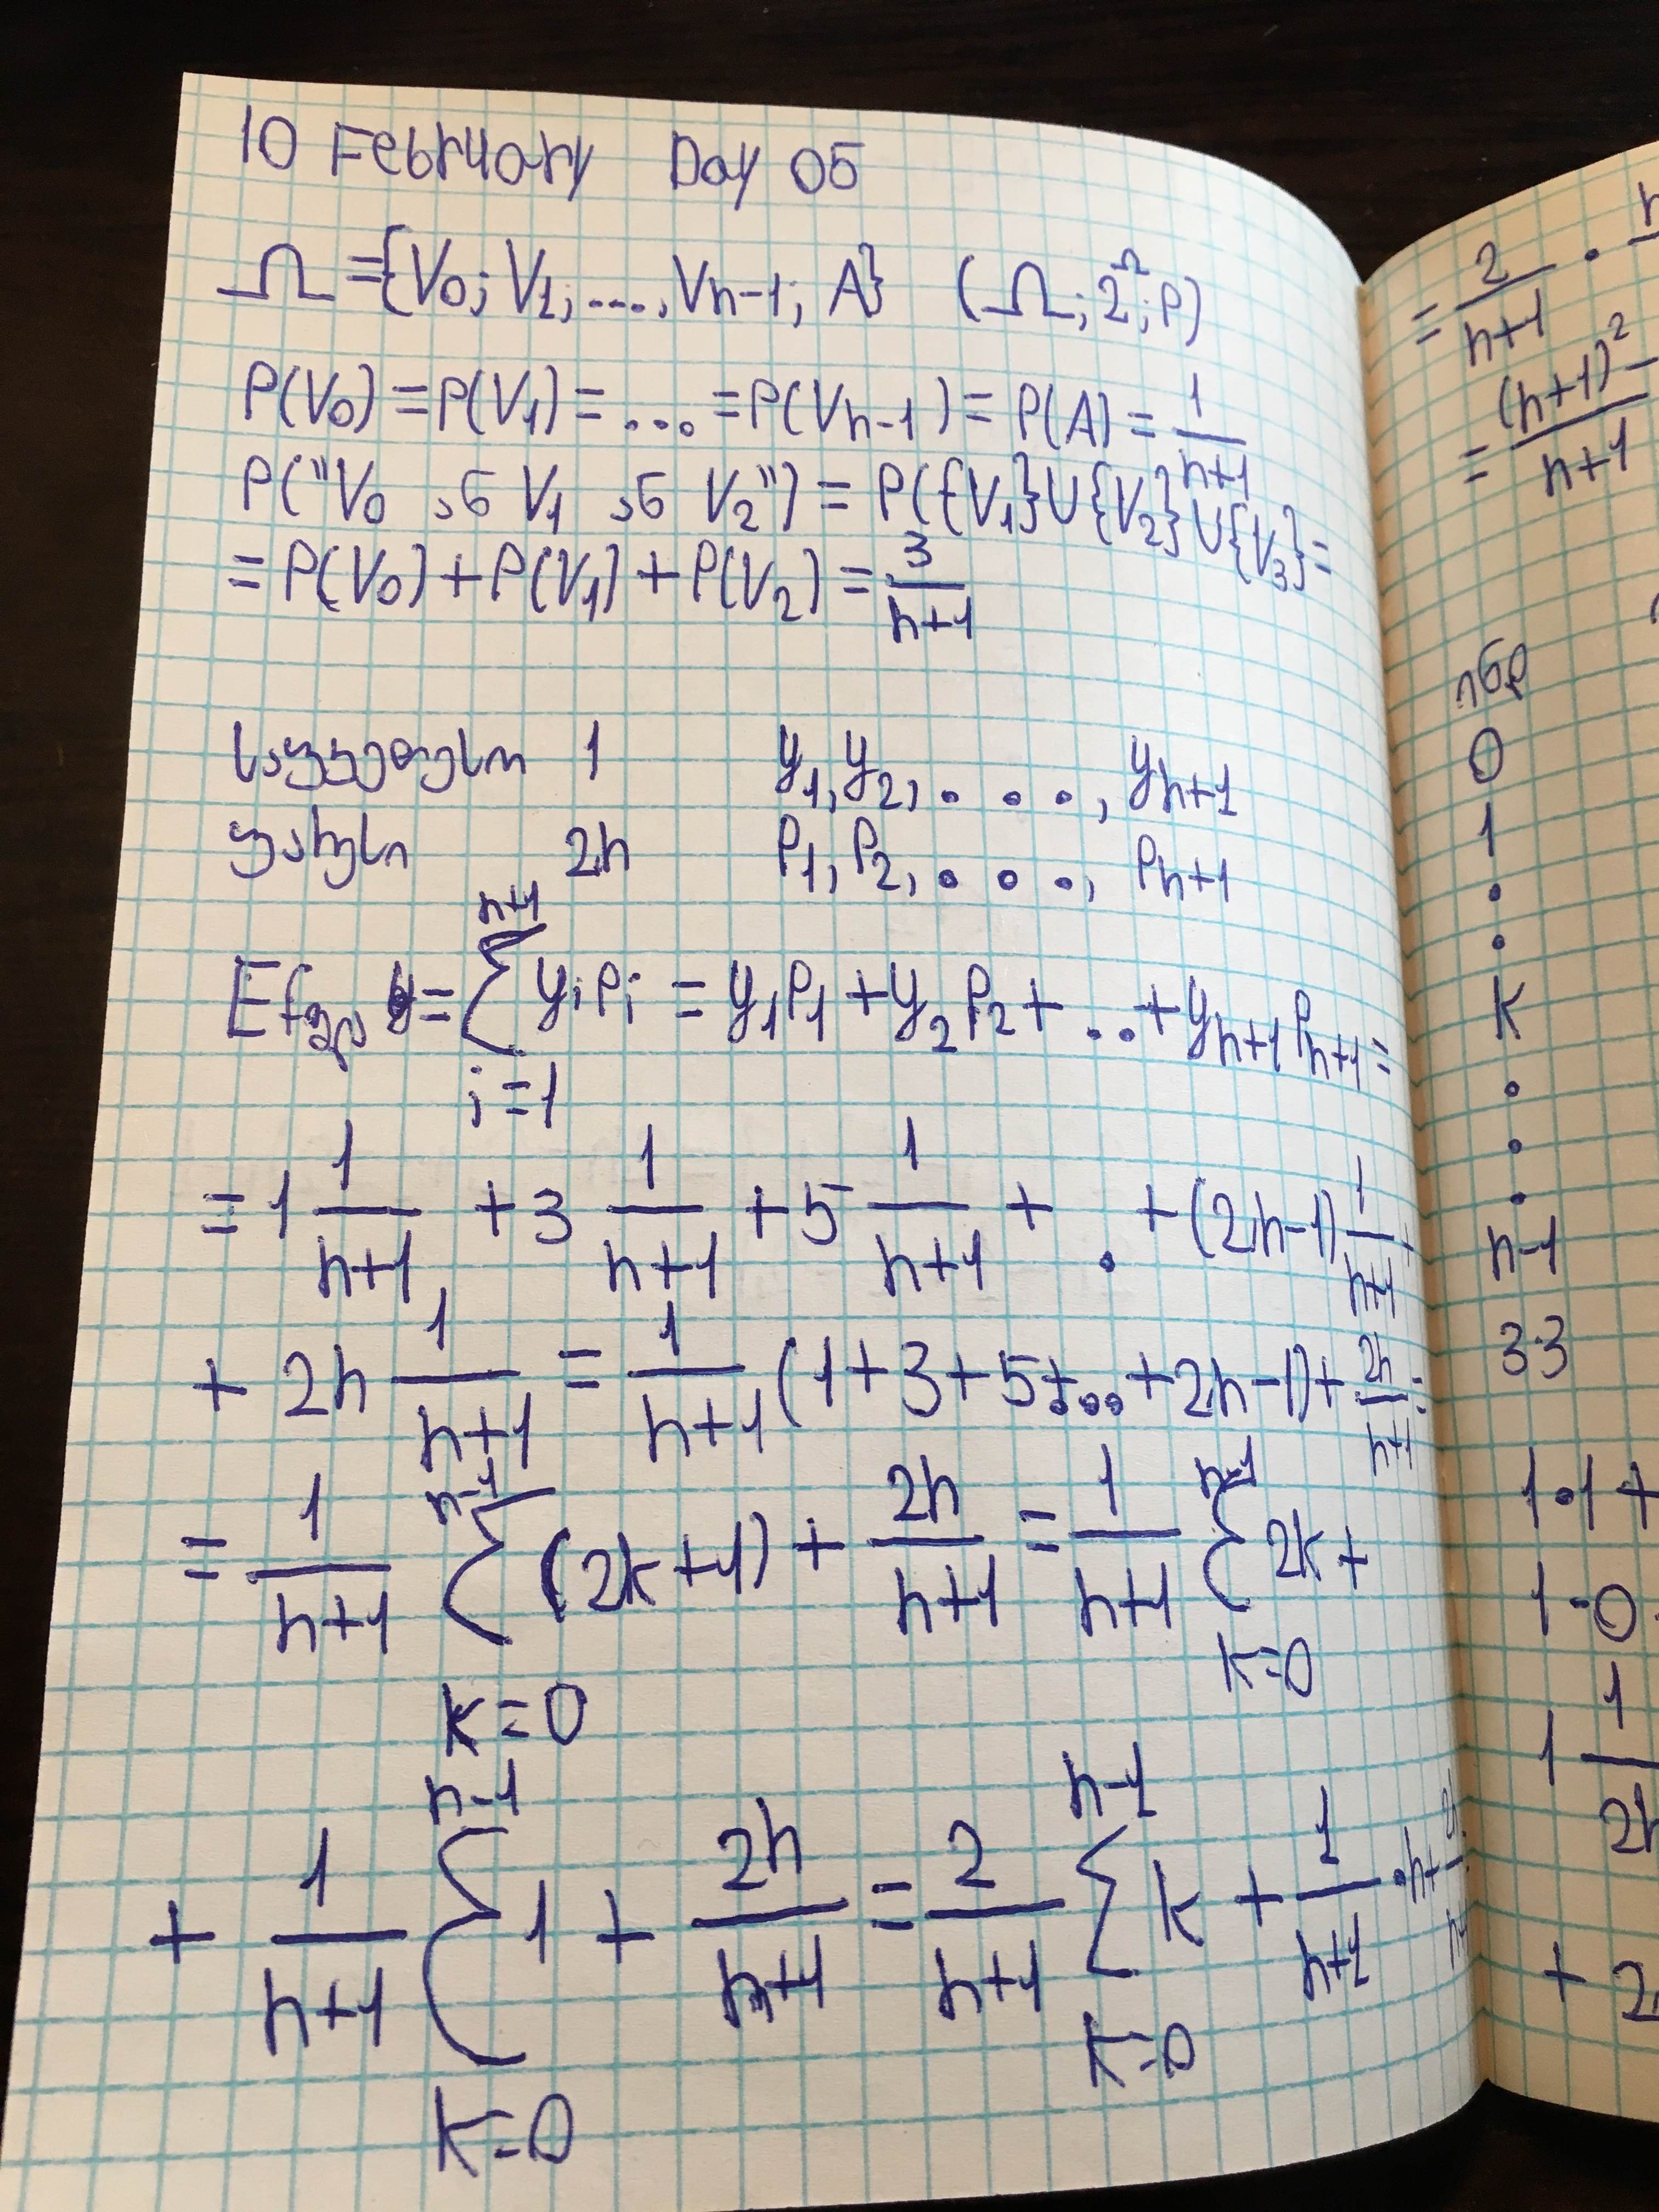 10 February Day 05
Ω = {V₀; V₁; ...., Vn-1; A} (Ω; 2^Ω; P)
P(V₀) = P(V₁) = ... = P(Vn-1) = P(A) = 1/(n+1)
P("V₀ ან V₁ ან V₂") = P({V₁}∪{V₂}∪{V₃} =
= P(V₀) + P(V₁) + P(V₂) = 3/(n+1)
საუკეთესო 1 y₁, y₂, . . ., yn+1
უარესი 2n P₁, P₂, . . ., Pn+1
y = Σ_{i=1}^{n+1} yᵢPᵢ = y₁P₁ + y₂P₂ + .. + yn+1 Pn+1 =
= 1 1/(n+1) + 3 1/(n+1) + 5 1/(n+1) + . + (2n-1) 1/(n+1) +
+ 2n 1/(n+1) = 1/(n+1) (1+3+5+...+2n-1) + 2n/(n+1) =
= 1/(n+1) Σ_{k=0}^{n-1} (2k+1) + 2n/(n+1) = 1/(n+1) Σ_{k=0}^{n-1} 2k +
+ 1/(n+1) Σ_{k=0}^{n-1} 1 + 2n/(n+1) = 2/(n+1) Σ_{k=0}^{n-1} k + 1/(n+1) · n + 2n/(n+1)
= 2/(n+1) ·
= (n+1)² - /(n+1)
ინდ
0
1
.
.
k
.
.
.
n-1
33
1·1+
1-0
1 1/
+ 2